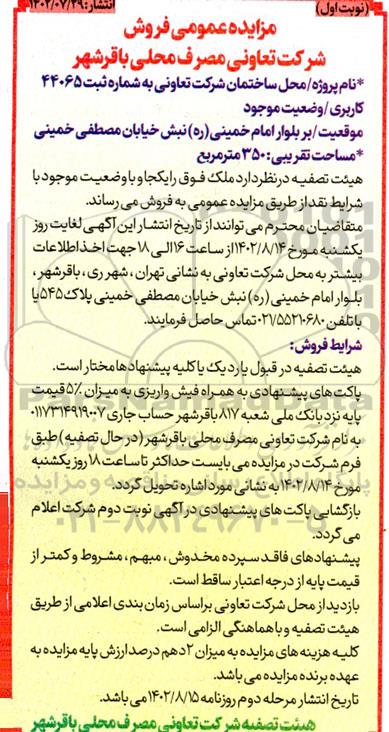 (نوبت اول)
انتشار: ۱۴۰۲/۰۷/۲۹
مزایده عمومی فروش
شرکت تعاونی مصرف محلی باقرشهر
*نام پروژه/محل ساختمان شرکت تعاونی به شماره ثبت ۴۴۰۶۵
کاربری/وضعیت موجود
موقعیت/بر بلوار امام خمینی(ره) نبش خیابان مصطفی خمینی
*مساحت تقریبی: ۳۵۰ مترمربع
هیئت تصفیه در نظر دارد ملک فوق را یکجا و با وضعیت موجود با
شرایط نقد از طریق مزایده عمومی به فروش می رساند.
متقاضیان محترم می توانند از تاریخ انتشار این آگهی لغایت روز
یکشنبه مورخ ۱۴۰۲/۸/۱۴ از ساعت ۱۶ الی ۱۸ جهت اخذ اطلاعات
بیشتر به محل شرکت تعاونی به نشانی تهران ، شهر ری ، باقرشهر ،
بلوار امام خمینی (ره) نبش خیابان مصطفی خمینی پلاک ۵۴۵ یا
با تلفن ۰۲۱/۵۵۲۱۰۶۸۰ تماس حاصل فرمایند.
شرایط فروش:
هیئت تصفیه در قبول یا رد یک یا کلیه پیشنهادها مختار است.
پاکت های پیشنهادی به همراه فیش واریزی به میزان ۵٪ قیمت
پایه نزد بانک ملی شعبه ۸۱۷ باقرشهر حساب جاری ۰۱۱۷۳۱۴۹۱۹۰۰۷
به نام شرکت تعاونی مصرف محلی باقرشهر (در حال تصفیه) طبق
فرم شرکت در مزایده می بایست حداکثر تا ساعت ۱۸ روز یکشنبه
مورخ ۱۴۰۲/۸/۱۴ به نشانی مورد اشاره تحویل گردد.
بازگشایی پاکت های پیشنهادی در آگهی نوبت دوم شرکت اعلام
می گردد.
پیشنهادهای فاقد سپرده مخدوش ، مبهم ، مشروط و کمتر از
قیمت پایه از درجه اعتبار ساقط است.
بازدید از محل شرکت تعاونی براساس زمان بندی اعلامی از طریق
هیئت تصفیه و با هماهنگی الزامی است.
کلیه هزینه های مزایده به میزان ۲ دهم درصد ارزش پایه مزایده به
عهده برنده مزایده می باشد.
تاریخ انتشار مرحله دوم روزنامه ۱۴۰۲/۸/۱۵ می باشد.
هیئت تصفیه شرکت تعاونی مصرف محلی باقرشهر
۰۲۱-۸۸۳۴۹۶۷۰-۵